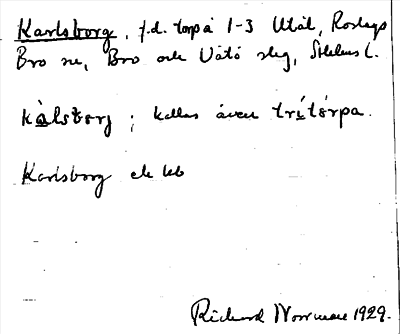 Karlsborg, f.d. torp å 1-3 Utål, Roslags
Bro sn, Bro och Vätö slg, Sthlms l.
kàlsborg ; kallas även trítórpa.
Karlsborg ek kb
Richard Norrman 1929.